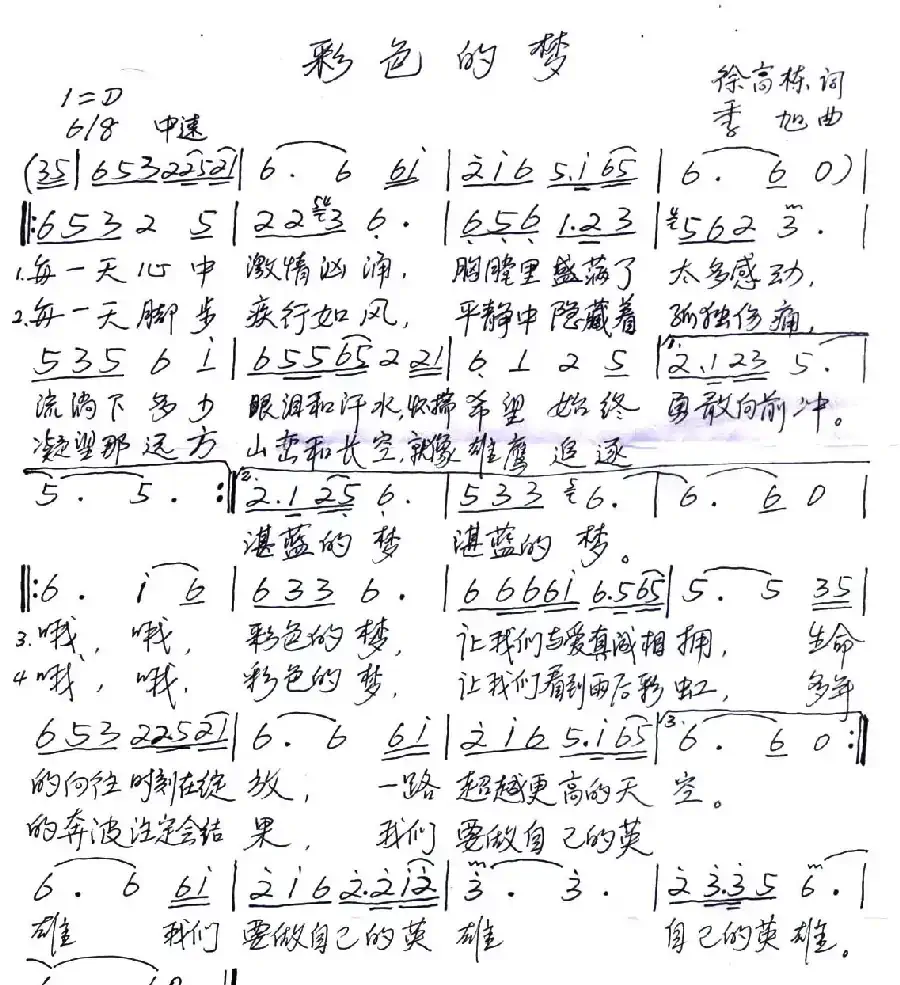 彩色的梦
1=D
徐高栋词
6/8 中速
季旭曲
(35 | 653 22521 | 6. 6 61 | 216 5.165 | 6. 6 0) |
||: 653 2 5 | 223 6. | 656 1.23 | 562 3. |
1.每一天心中 激情汹涌, 胸膛里盛满了 太多感动,
2.每一天脚步 疾行如风, 平静中隐藏着 孤独伤痛,
535 6 i | 65565 2 21 | 6 1 2 5 | 1. 2.123 5. |
流淌下多少 眼泪和汗水,怀揣希望始终 勇敢向前冲。
凝望那远方 山峦和长空,就像雄鹰追逐
5. 5. :|| 2. 2.125 6. | 533 6. | 6. 6 0
湛蓝的梦 湛蓝的梦。
||: 6. i 6 | 633 6. | 6666i 6.565 | 5. 5 35 |
3.哦, 哦, 彩色的梦, 让我们与爱真诚相拥, 生命
4.哦, 哦, 彩色的梦, 让我们看到雨后彩虹, 多年
653 22.521 | 6. 6 6i | 2i6 5.i65 | 3. 6. 6 0 :||
的向往时刻在绽放, 一路超越更高的天空。
的奔波注定会结果, 我们要做自己的英
6. 6 6i | 2i6 2.2i2 | 3. 3. | 23.35 6. |
雄 我们要做自己的英雄 自己的英雄。